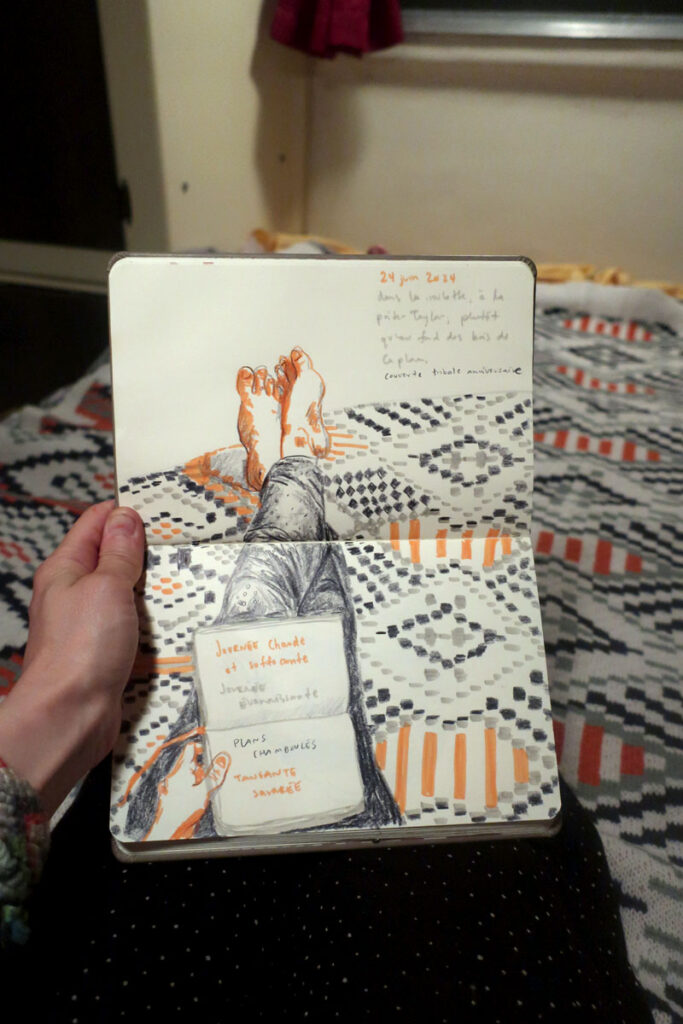 24 juin 2024
dans la roulotte, à la
Taylor, plutôt
qu'au fond des bois de
couverte tribale anniversaire
JOURNÉE Chaude
et suffocante
JOURNÉE
évanouissante
PLANS
CHAMBOULÉS
TANGANTE
SOIRÉE